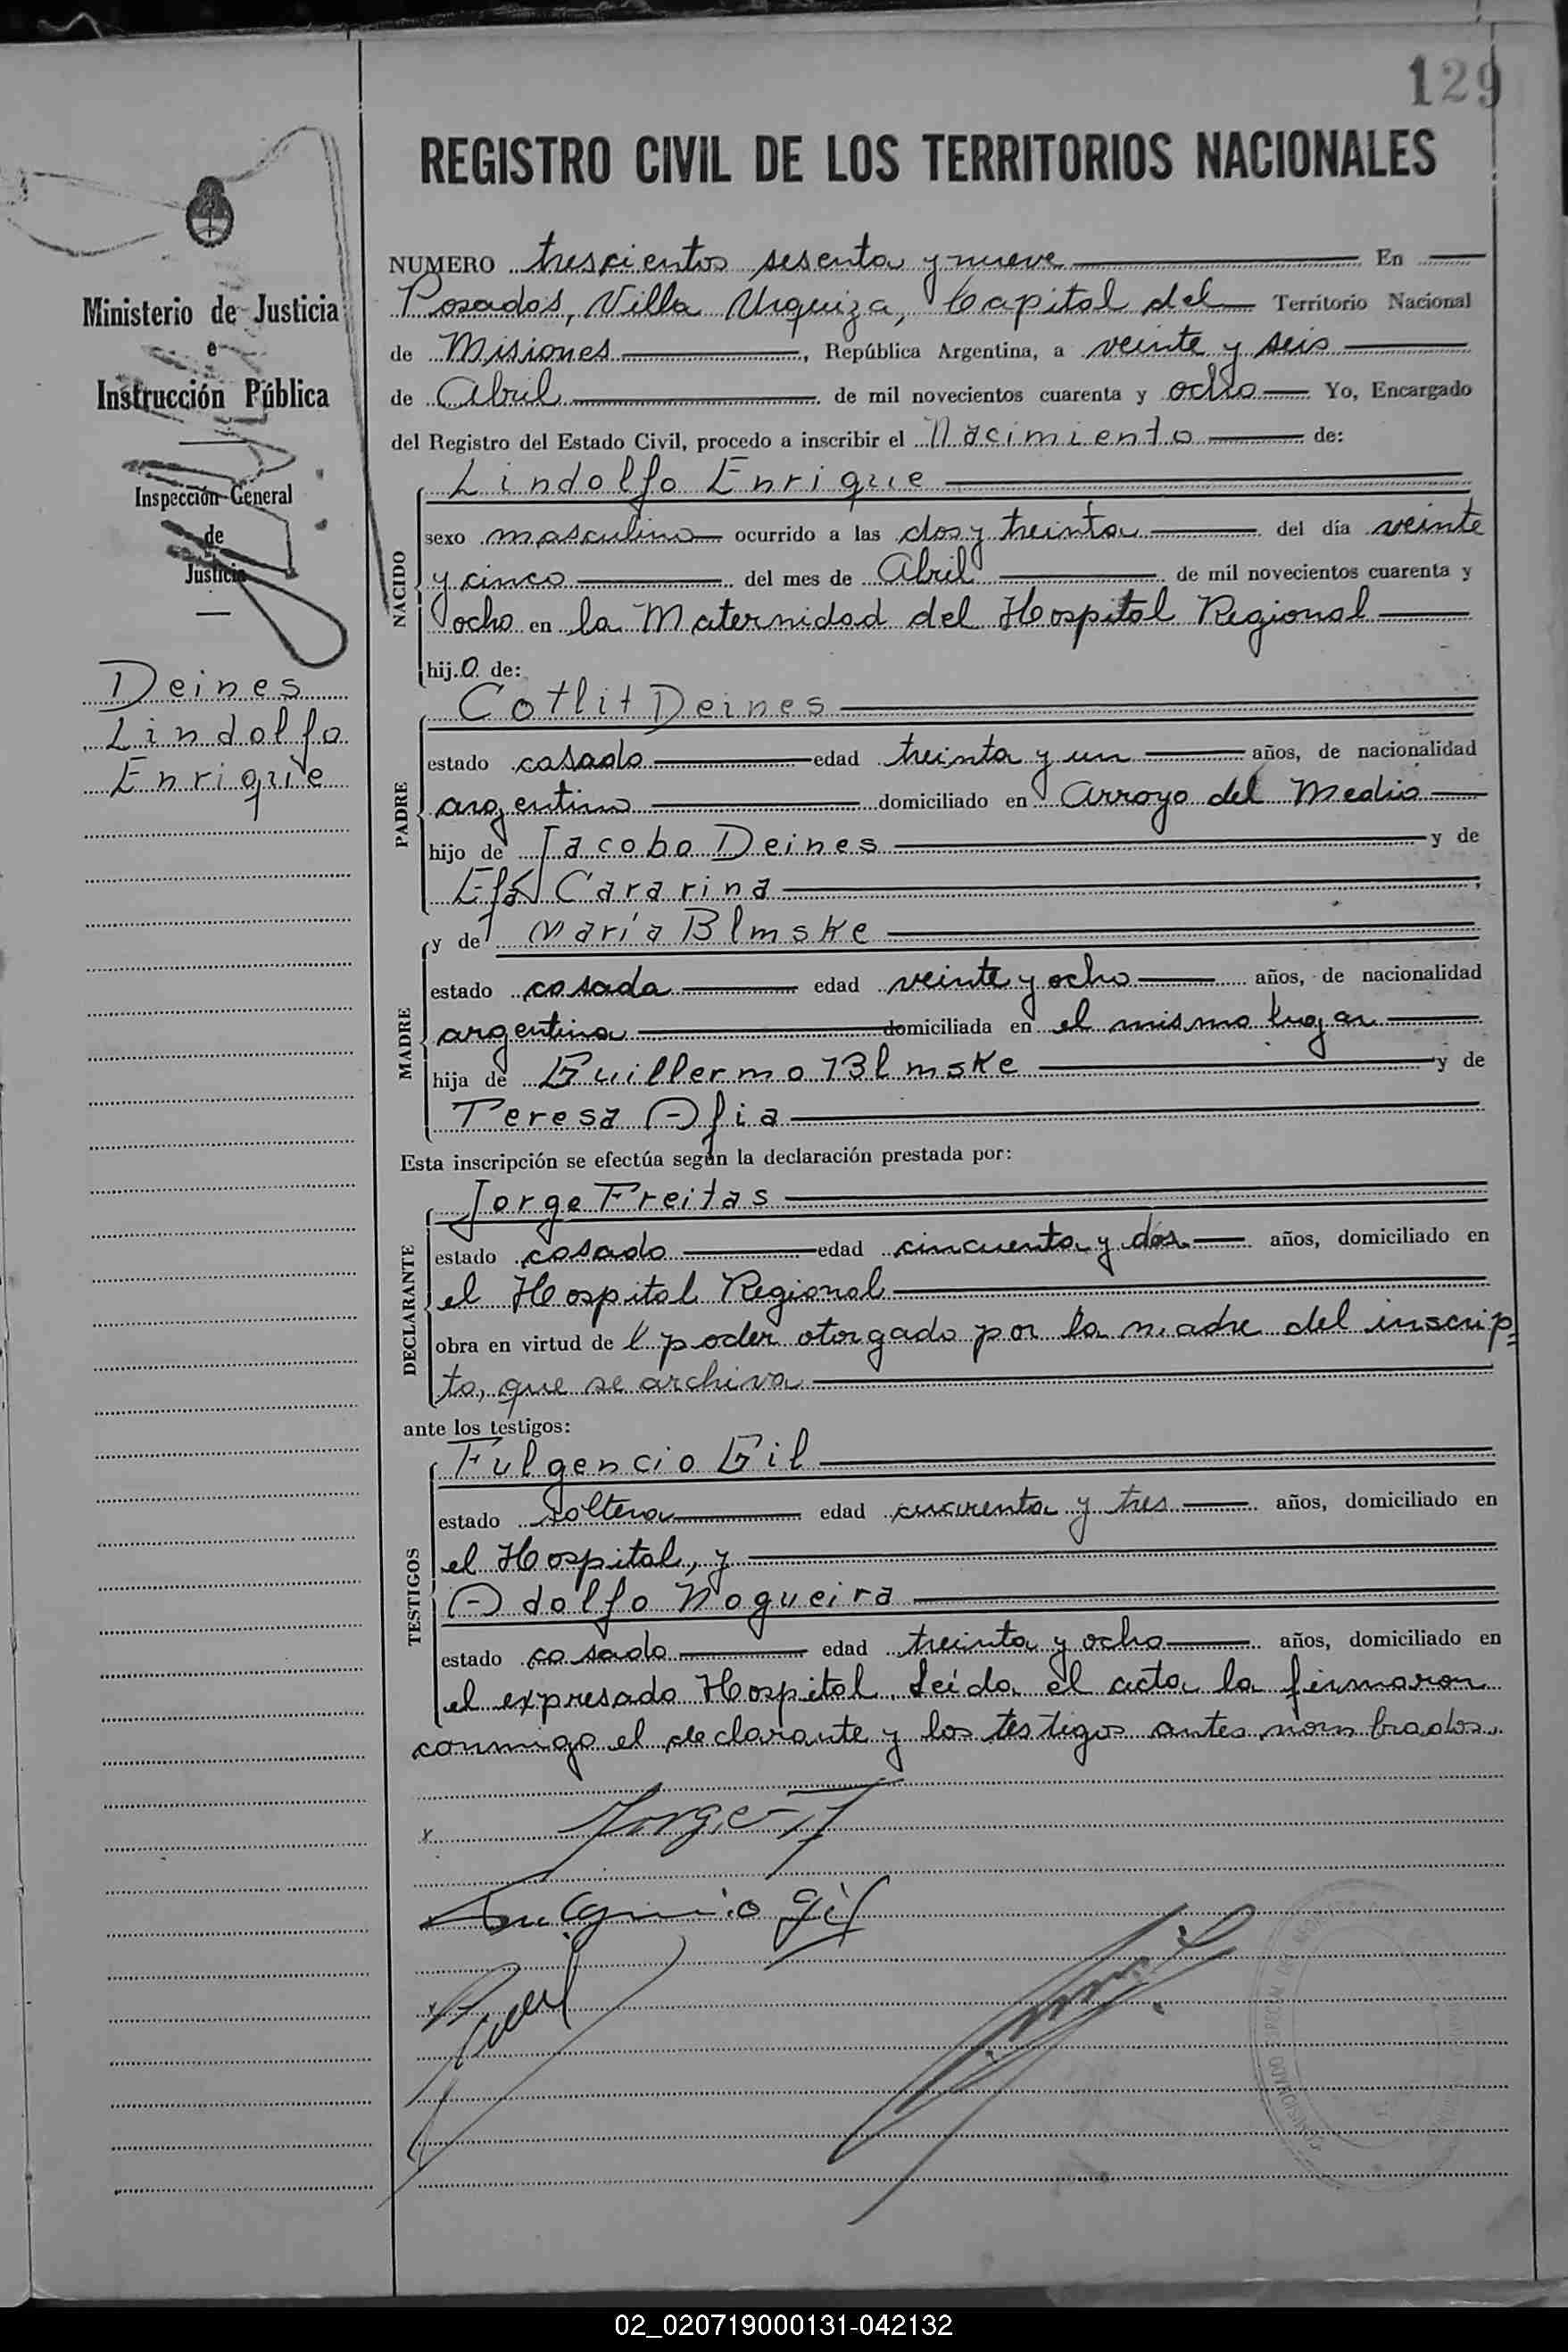 129
REGISTRO CIVIL DE LOS TERRITORIOS NACIONALES
Ministerio de Justicia
e
Instrucción Pública
Inspección General
de
Justicia
Deines
Lindolfo
Enrique
NUMERO trescientos sesenta y nueve En
Posadas, Villa Urquiza, Capital del Territorio Nacional
de Misiones, República Argentina, a veinte y seis
de Abril de mil novecientos cuarenta y ocho Yo, Encargado
del Registro del Estado Civil, procedo a inscribir el Nacimiento de:
NACIDO
Lindolfo Enrique
sexo masculino ocurrido a las dos y treinta del día veinte
y cinco del mes de Abril de mil novecientos cuarenta y
ocho en la Maternidad del Hospital Regional
hij.o de:
PADRE
Cotlit Deines
estado casado edad treinta y un años, de nacionalidad
argentino domiciliado en Arroyo del Medio
hijo de Jacobo Deines y de
Efá Cararina;
MADRE
y de María Blmske
estado casada edad veinte y ocho años, de nacionalidad
argentina domiciliada en el mismo lugar
hija de Guillermo Blmske y de
Teresa Afia
Esta inscripción se efectúa según la declaración prestada por:
DECLARANTE
Jorge Freitas
estado casado edad cincuenta y dos años, domiciliado en
el Hospital Regional
obra en virtud de l poder otorgado por la madre del inscrip=
to, que se archiva
ante los testigos:
TESTIGOS
Fulgencio Gil
estado soltero edad cuarenta y tres años, domiciliado en
el Hospital, y
Adolfo Nogueira
estado casado edad treinta y ocho años, domiciliado en
el expresado Hospital. Leída el acta la firmaron
conmigo el declarante y los testigos antes nombrados.
x Jorge F
Fulgencio Gil
02_020719000131-042132